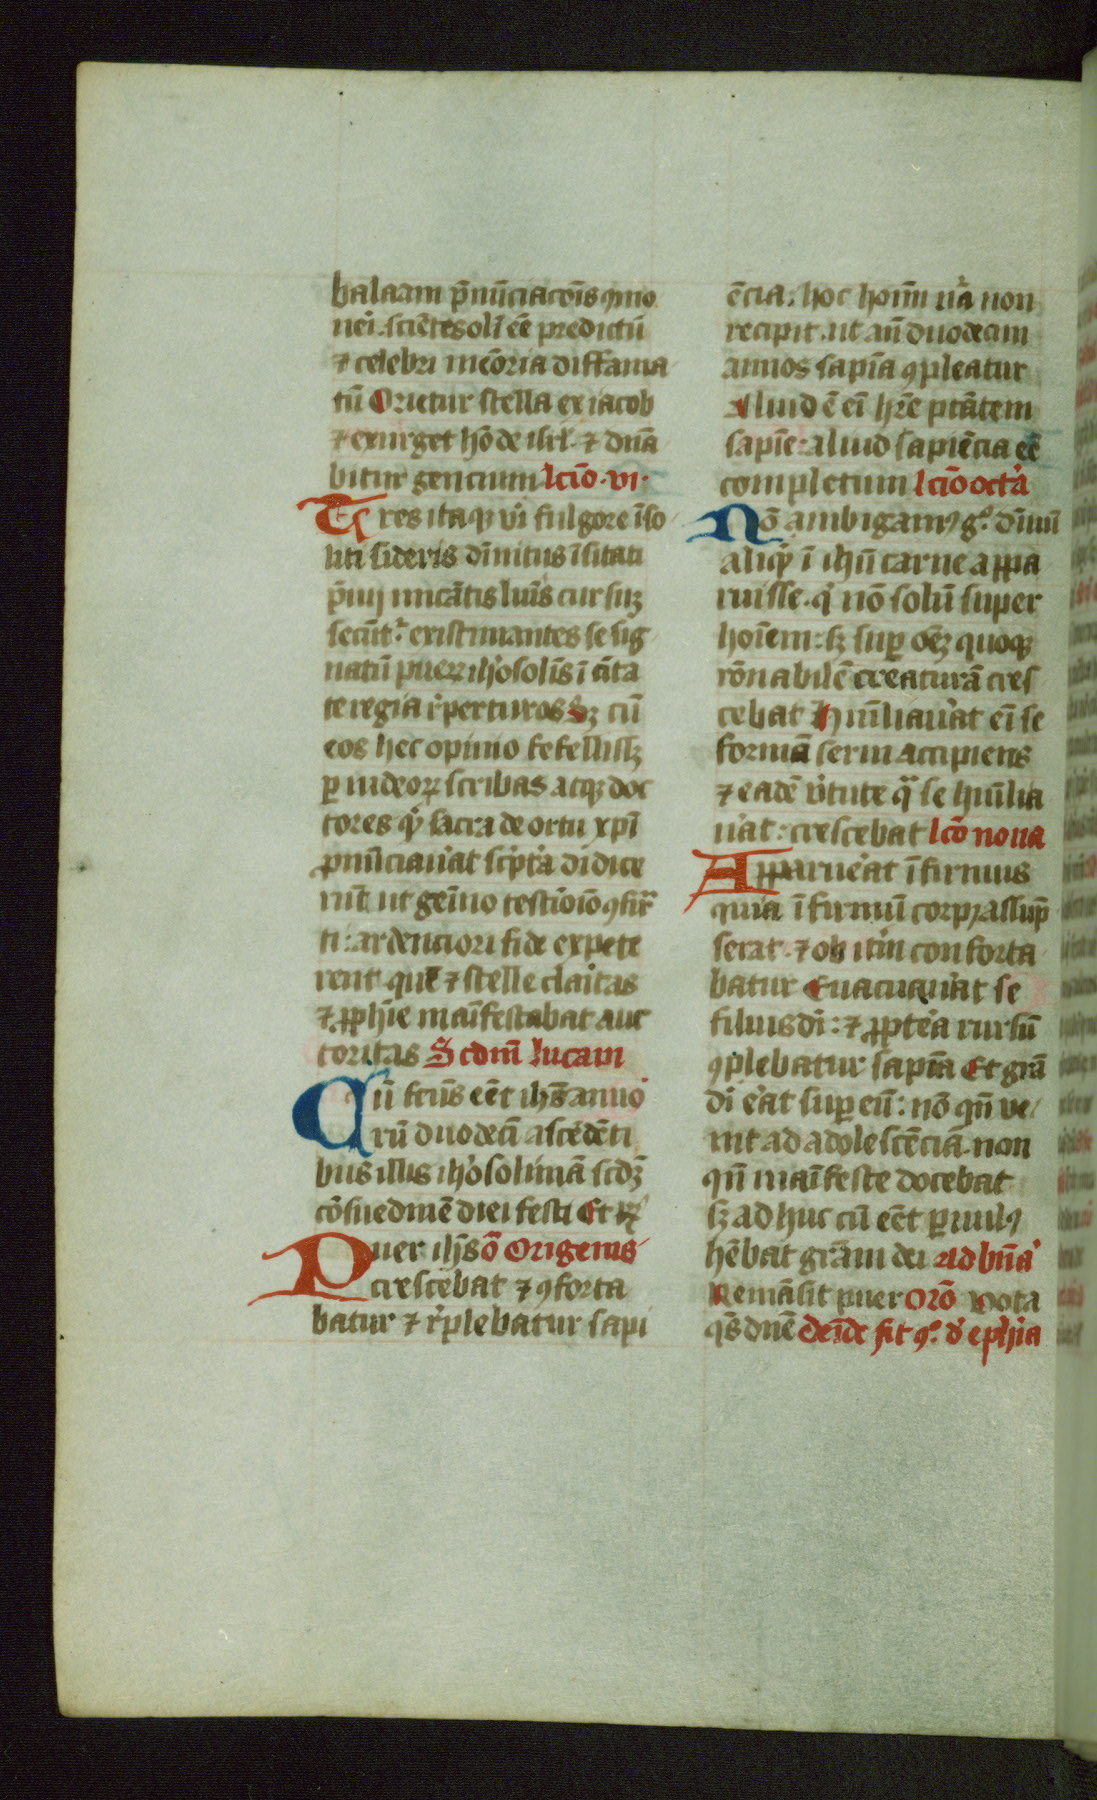 balaam p̄nūciatōīs qm̄o
nei̇. sciētes olī eē predictū
⁊ celebri mēoria diffama
tū Orietur stella ex iacob
⁊ exurget hō de isrl̄. ⁊ dn̄a
bitur gencium lcīo. vi.
Tres itaqꝫ vi̇ fulgore īso
liti sideris dīnitus īsitati
p̄uij micātis luīs cursuꝫ
secūt᷑ existimantes se sig
natū pueꝝ ih̓osolīs ī ciu̇ta
te regia r̓perturos Sꝫ cū
eos hec opinio fefellisꝫ
ꝑ iudeoꝝ scribas atqꝫ doc
tores qͥ sacra de ortu xp̄i
ꝓnūciau̓at sc̓pta didice
rūt ut geīno testīoīo ꝯfir̄
ti: ardenciori fide expete
rent. quē ⁊ stelle clai̓tas
⁊ ꝓph̄ie maīfestabat auc
toritas Scdm̄ lucam
Cū fcūs eēt ih̄s annoꝛ
rū duodecī ascēdēti
bus illis ih̓osolimā scdꝫ
cōsuedinē diei festi Et rꝫ
Puer ih̄s ō Origenis
crescebat ⁊ ꝯforta
batur ⁊ r̓plebatur sapi
ēcia. hoc hoīm nr̄a non
recipit. ut an̄ duodecim
annos sapīa ꝯpleatur
Aliud ē eī hr̄e ptātem
sapīe: aliud sapiēcia eē
completum lcīo octa̓
Nō ambigamꝰ gͦ. dīuū
aliqͥ ī ih̄u carne appa
ruisse. qͥ nō solū super
hoīem: sꝫ suꝑ oēꝫ quoqꝫ
rōnabilē creaturā cres
cebat Huīliau̓at eī se
formā serui accipiens
⁊ eadē v̓tute qͣ se huīlia
u̓at: crescebat lcō nona
Apparue̓at īfirmus
quia īfirmū corpꝫ assūp
serat. ⁊ ob itm̄ conforta
batur Euacuau̓at se
filius di̓: ⁊ ꝓpte̓a rursū
ꝯplebatur sapīa Et grā
di̓ e̓at suꝑ eū: nō qn̄ ve
nit ad adolescēciā. non
qn̄ maīfeste docebat
sꝫ adhuc cū eēt ꝑuulꝰ
hēbat grām dei Ad bn̄a
Remāsit puer Orō Vota
qs̄ dnē deīde fit ꝯͦ. d̓ eph̓ia